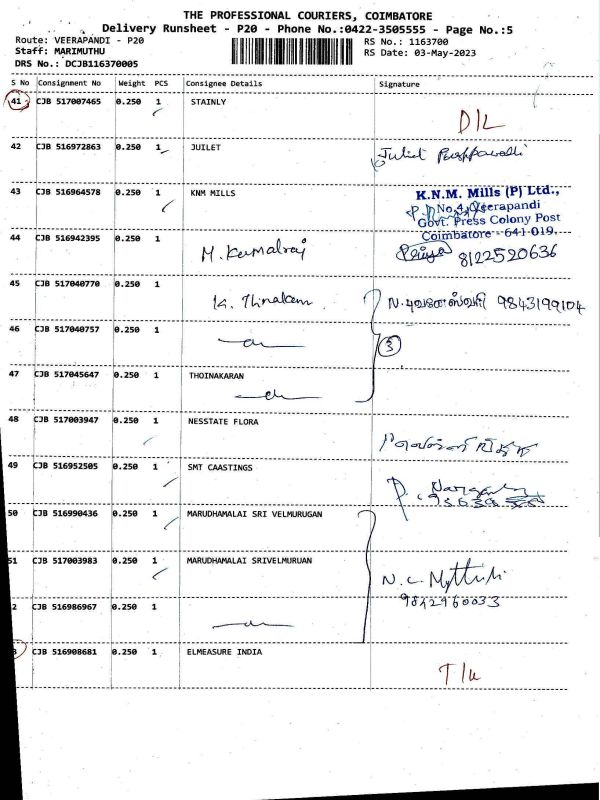 THE PROFESSIONAL COURIERS, COIMBATORE
Delivery Runsheet - P20 - Phone No.:0422-3505555 - Page No.:5
Route: VEERAPANDI - P20 RS No.: 1163700
Staff: MARIMUTHU RS Date: 03-May-2023
DRS No.: DCJB116370005
S No Consignment No Weight PCS Consignee Details Signature
41 CJB 517007465 0.250 1 STAINLY
D/L
42 CJB 516972863 0.250 1 JUILET Juliet
43 CJB 516964578 0.250 1 KNM MILLS K.N.M. Mills (P) Ltd.,
No.4, Veerapandi
Govt. Press Colony Post
Coimbatore - 641-019.
44 CJB 516942395 0.250 1
M. Kamalraj Priya 8122520636
45 CJB 517040770 0.250 1
N. புவனேஸ்வரி 9843199104
46 CJB 517040757 0.250 1
3
47 CJB 517045647 0.250 1 THOINAKARAN
48 CJB 517003947 0.250 1 NESSTATE FLORA
49 CJB 516952505 0.250 1 SMT CAASTINGS
50 CJB 516990436 0.250 1 MARUDHAMALAI SRI VELMURUGAN
51 CJB 517003983 0.250 1 MARUDHAMALAI SRIVELMURUAN
N. C.
9842960033
2 CJB 516986967 0.250 1
3 CJB 516908681 0.250 1 ELMEASURE INDIA